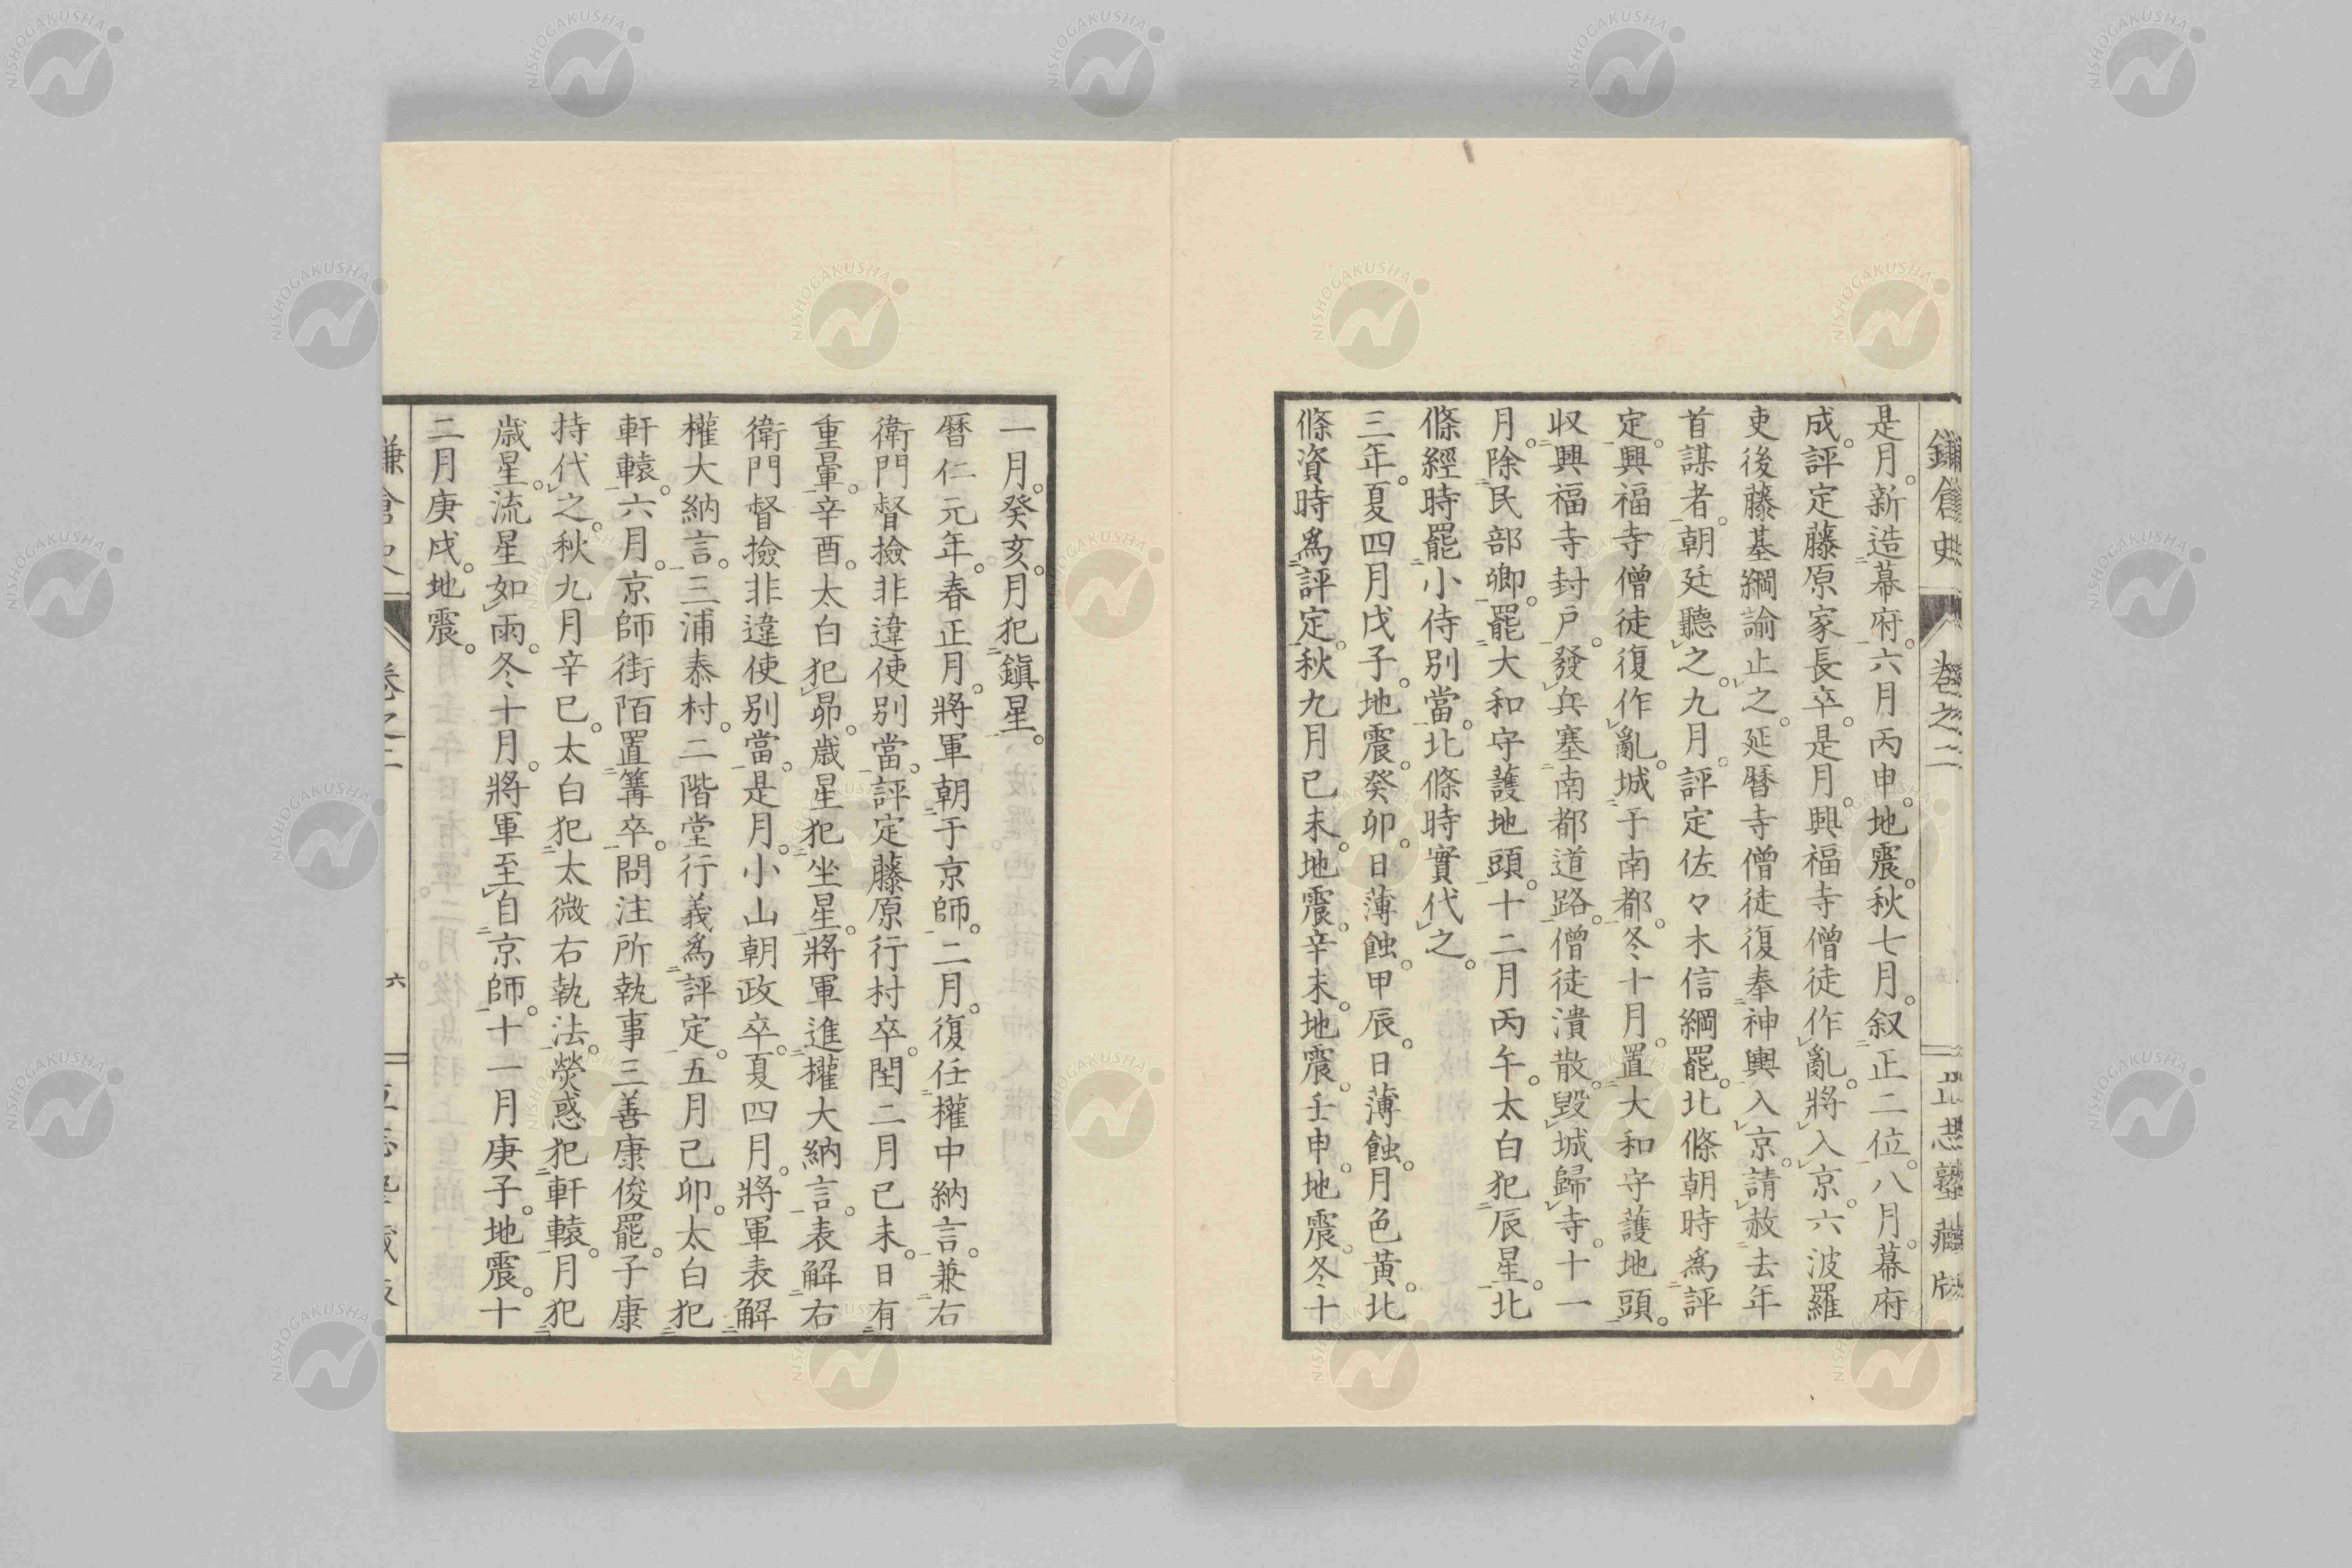 鎌倉史
卷之二
止恐塾藏版
是月。新造幕府。六月丙申。地震。秋七月。叙正二位。八月。幕府
成。評定藤原家長卒。是月。興福寺僧徒作亂。將入京。六波羅
吏後藤基綱諭止之。延曆寺僧徒復奉神輿入京。請赦去年
首謀者。朝廷聽之。九月。評定佐々木信綱罷。北條朝時爲評
定。興福寺僧徒復作亂。城于南都。冬十月。置大和守護地頭。
収興福寺封戶。發兵塞南都道路。僧徒潰散。毀城歸寺。十一
月。除民部卿。罷大和守護地頭。十二月丙午。太白犯辰星。北
條經時罷小侍別當。北條時實代之。
三年。夏四月戊子。地震。癸卯。日薄蝕。甲辰。日薄蝕。月色黃。北
條資時爲評定。秋九月己未。地震。辛未。地震。壬申。地震。冬十
一月。癸亥。月犯鎭星。
曆仁元年。春正月。將軍朝于京師。二月。復任權中納言。兼右
衛門督撿非違使別當。評定藤原行村卒。閏二月己未。日有
重暈。辛酉。太白犯昴。歲星犯坐星。將軍進權大納言。表解右
衛門督撿非違使別當。是月。小山朝政卒。夏四月。將軍表解
權大納言。三浦泰村。二階堂行義爲評定。五月己卯。太白犯
軒轅。六月。京師街陌置篝卒。問注所執事三善康俊罷。子康
持代之。秋九月辛巳。太白犯太微右執法。熒惑犯軒轅。月犯
歲星。流星如雨。冬十月。將軍至自京師。十一月庚子。地震。十
二月庚戌。地震。
六